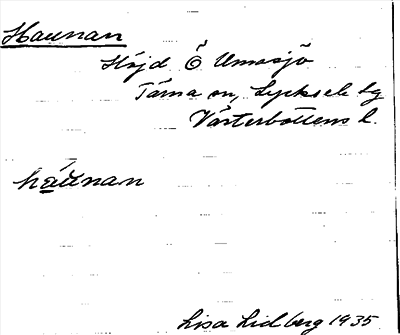 Haunan
Höjd Ö Umasjö
Tärna sn, Lycksele lg
Västerbottens l.
háunan
Lisa Lidberg 1935